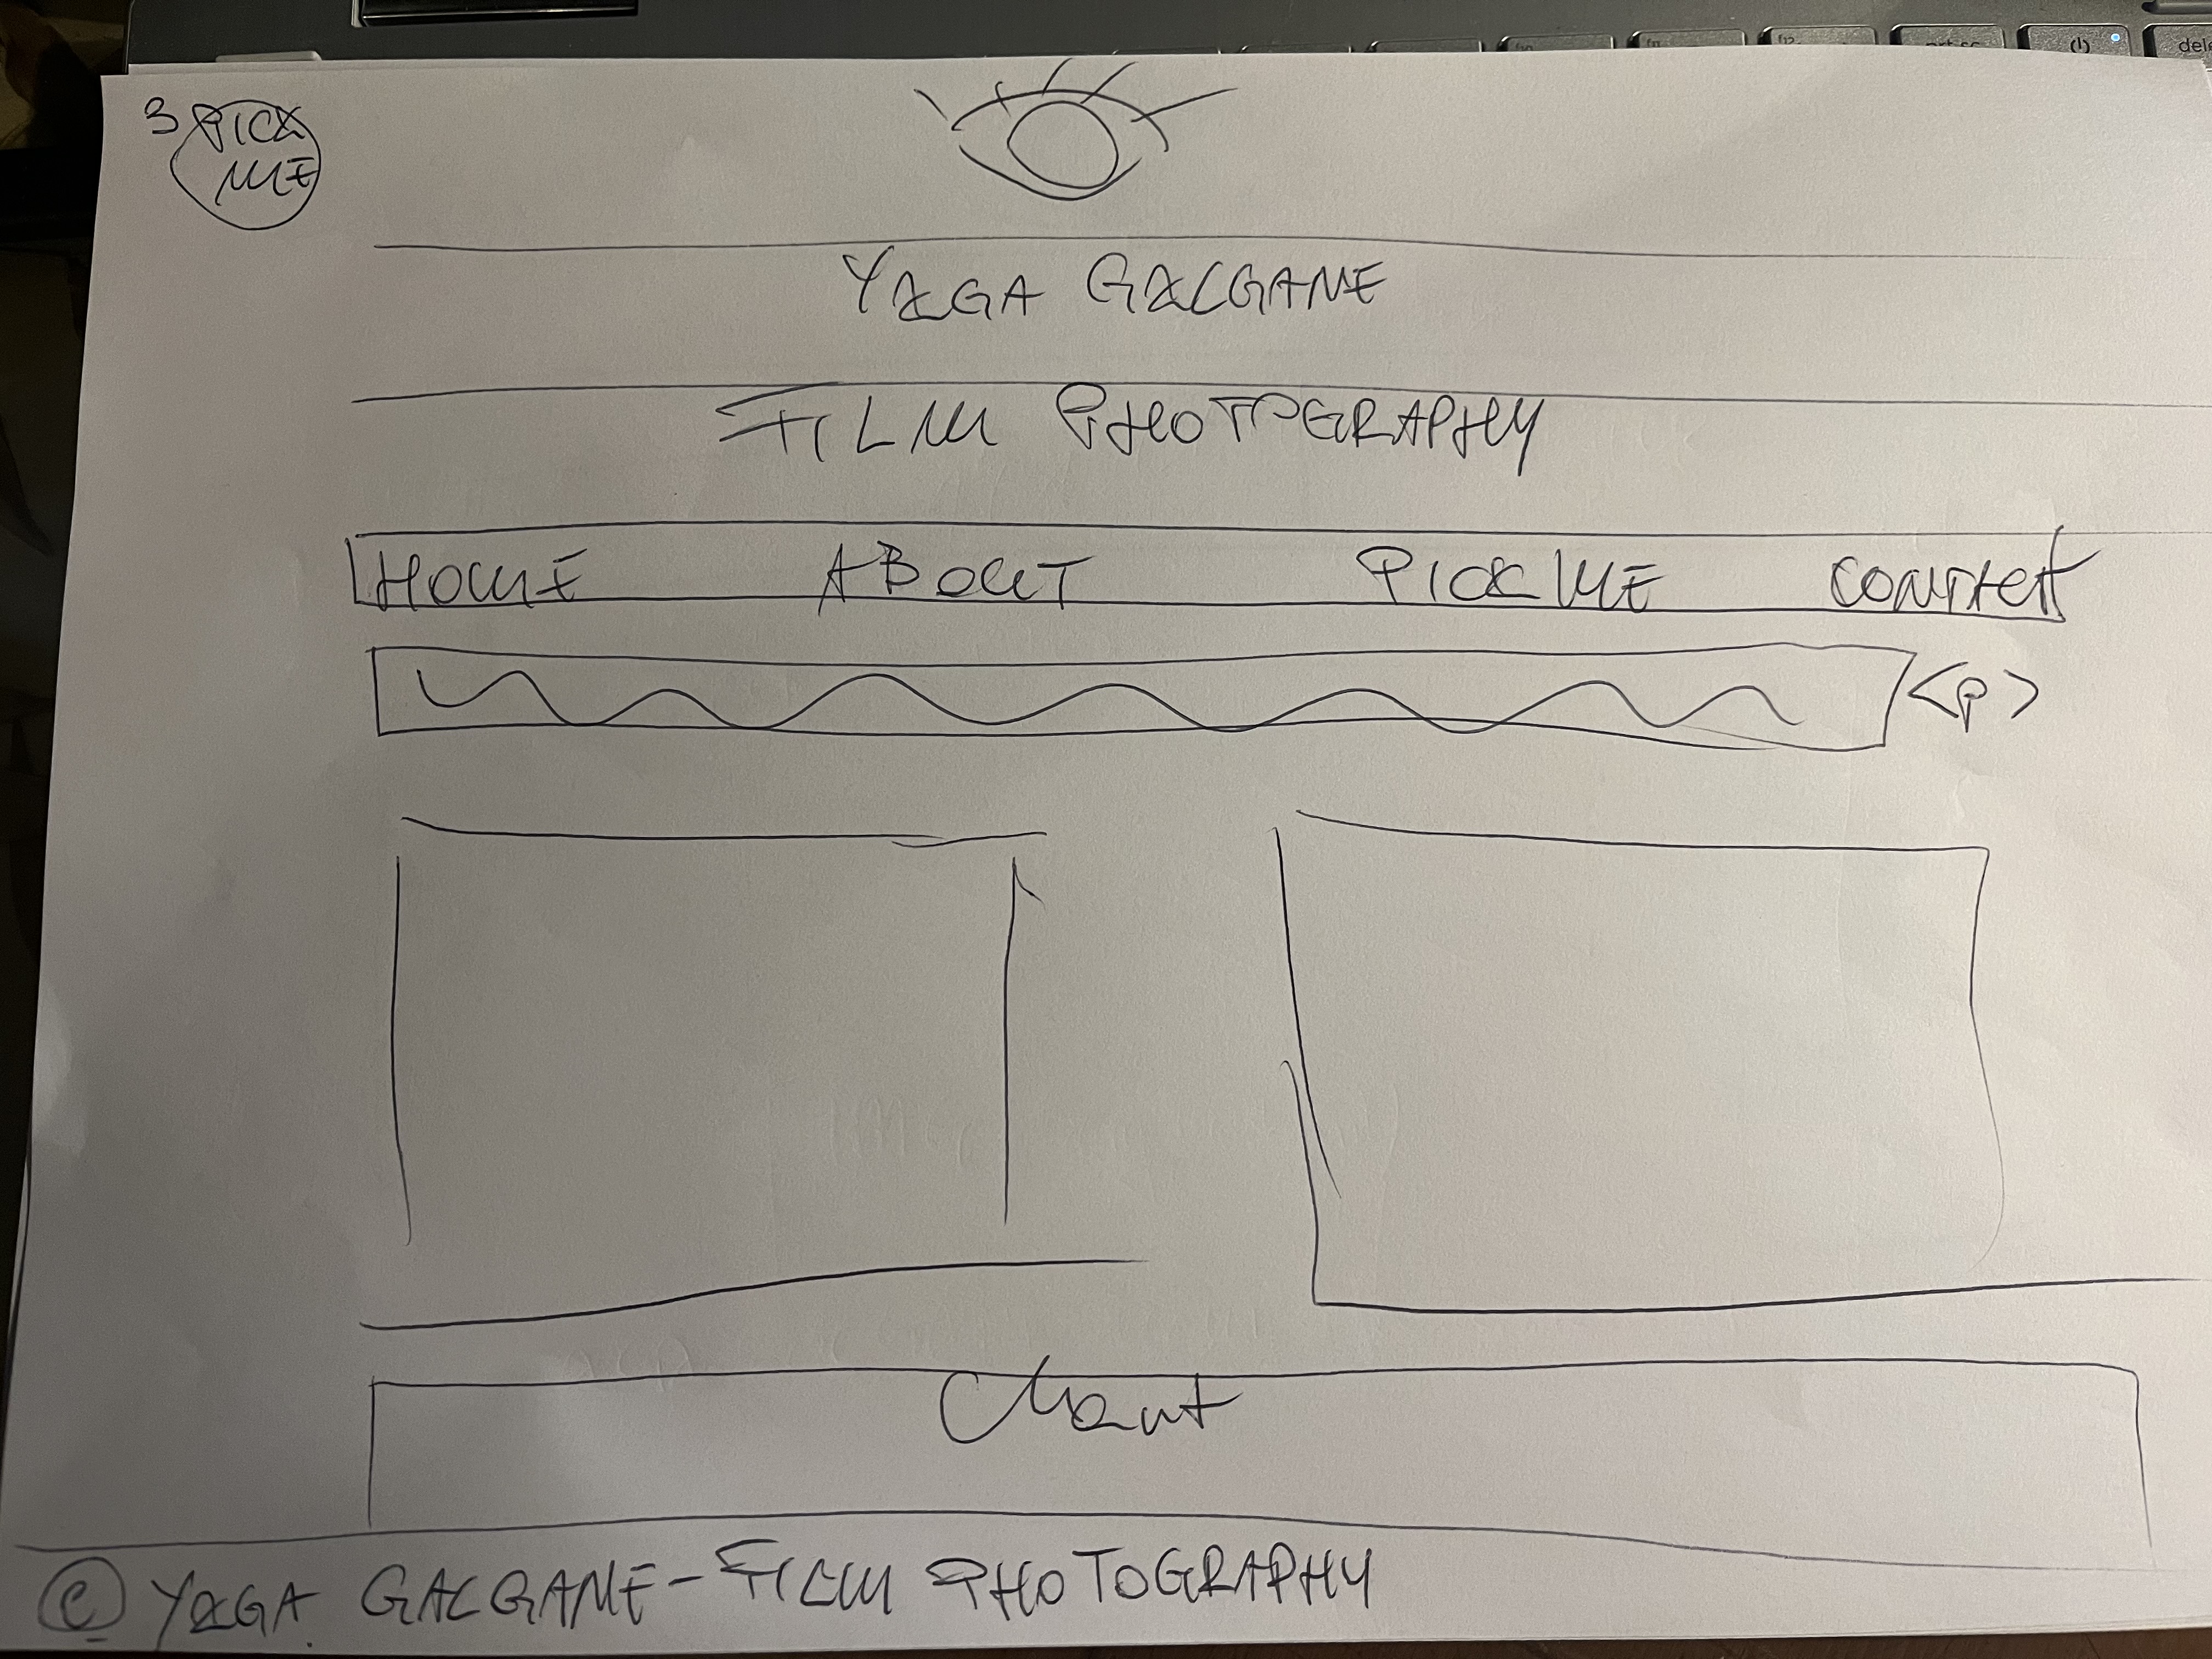 3 PICK
ME
YAGA GALGANE
FILM PHOTOGRAPHY
HOME ABOUT PICK ME CONTACT
<p>
Chart
© YAGA GALGANE - FILM PHOTOGRAPHY
f11
f12
prt sc